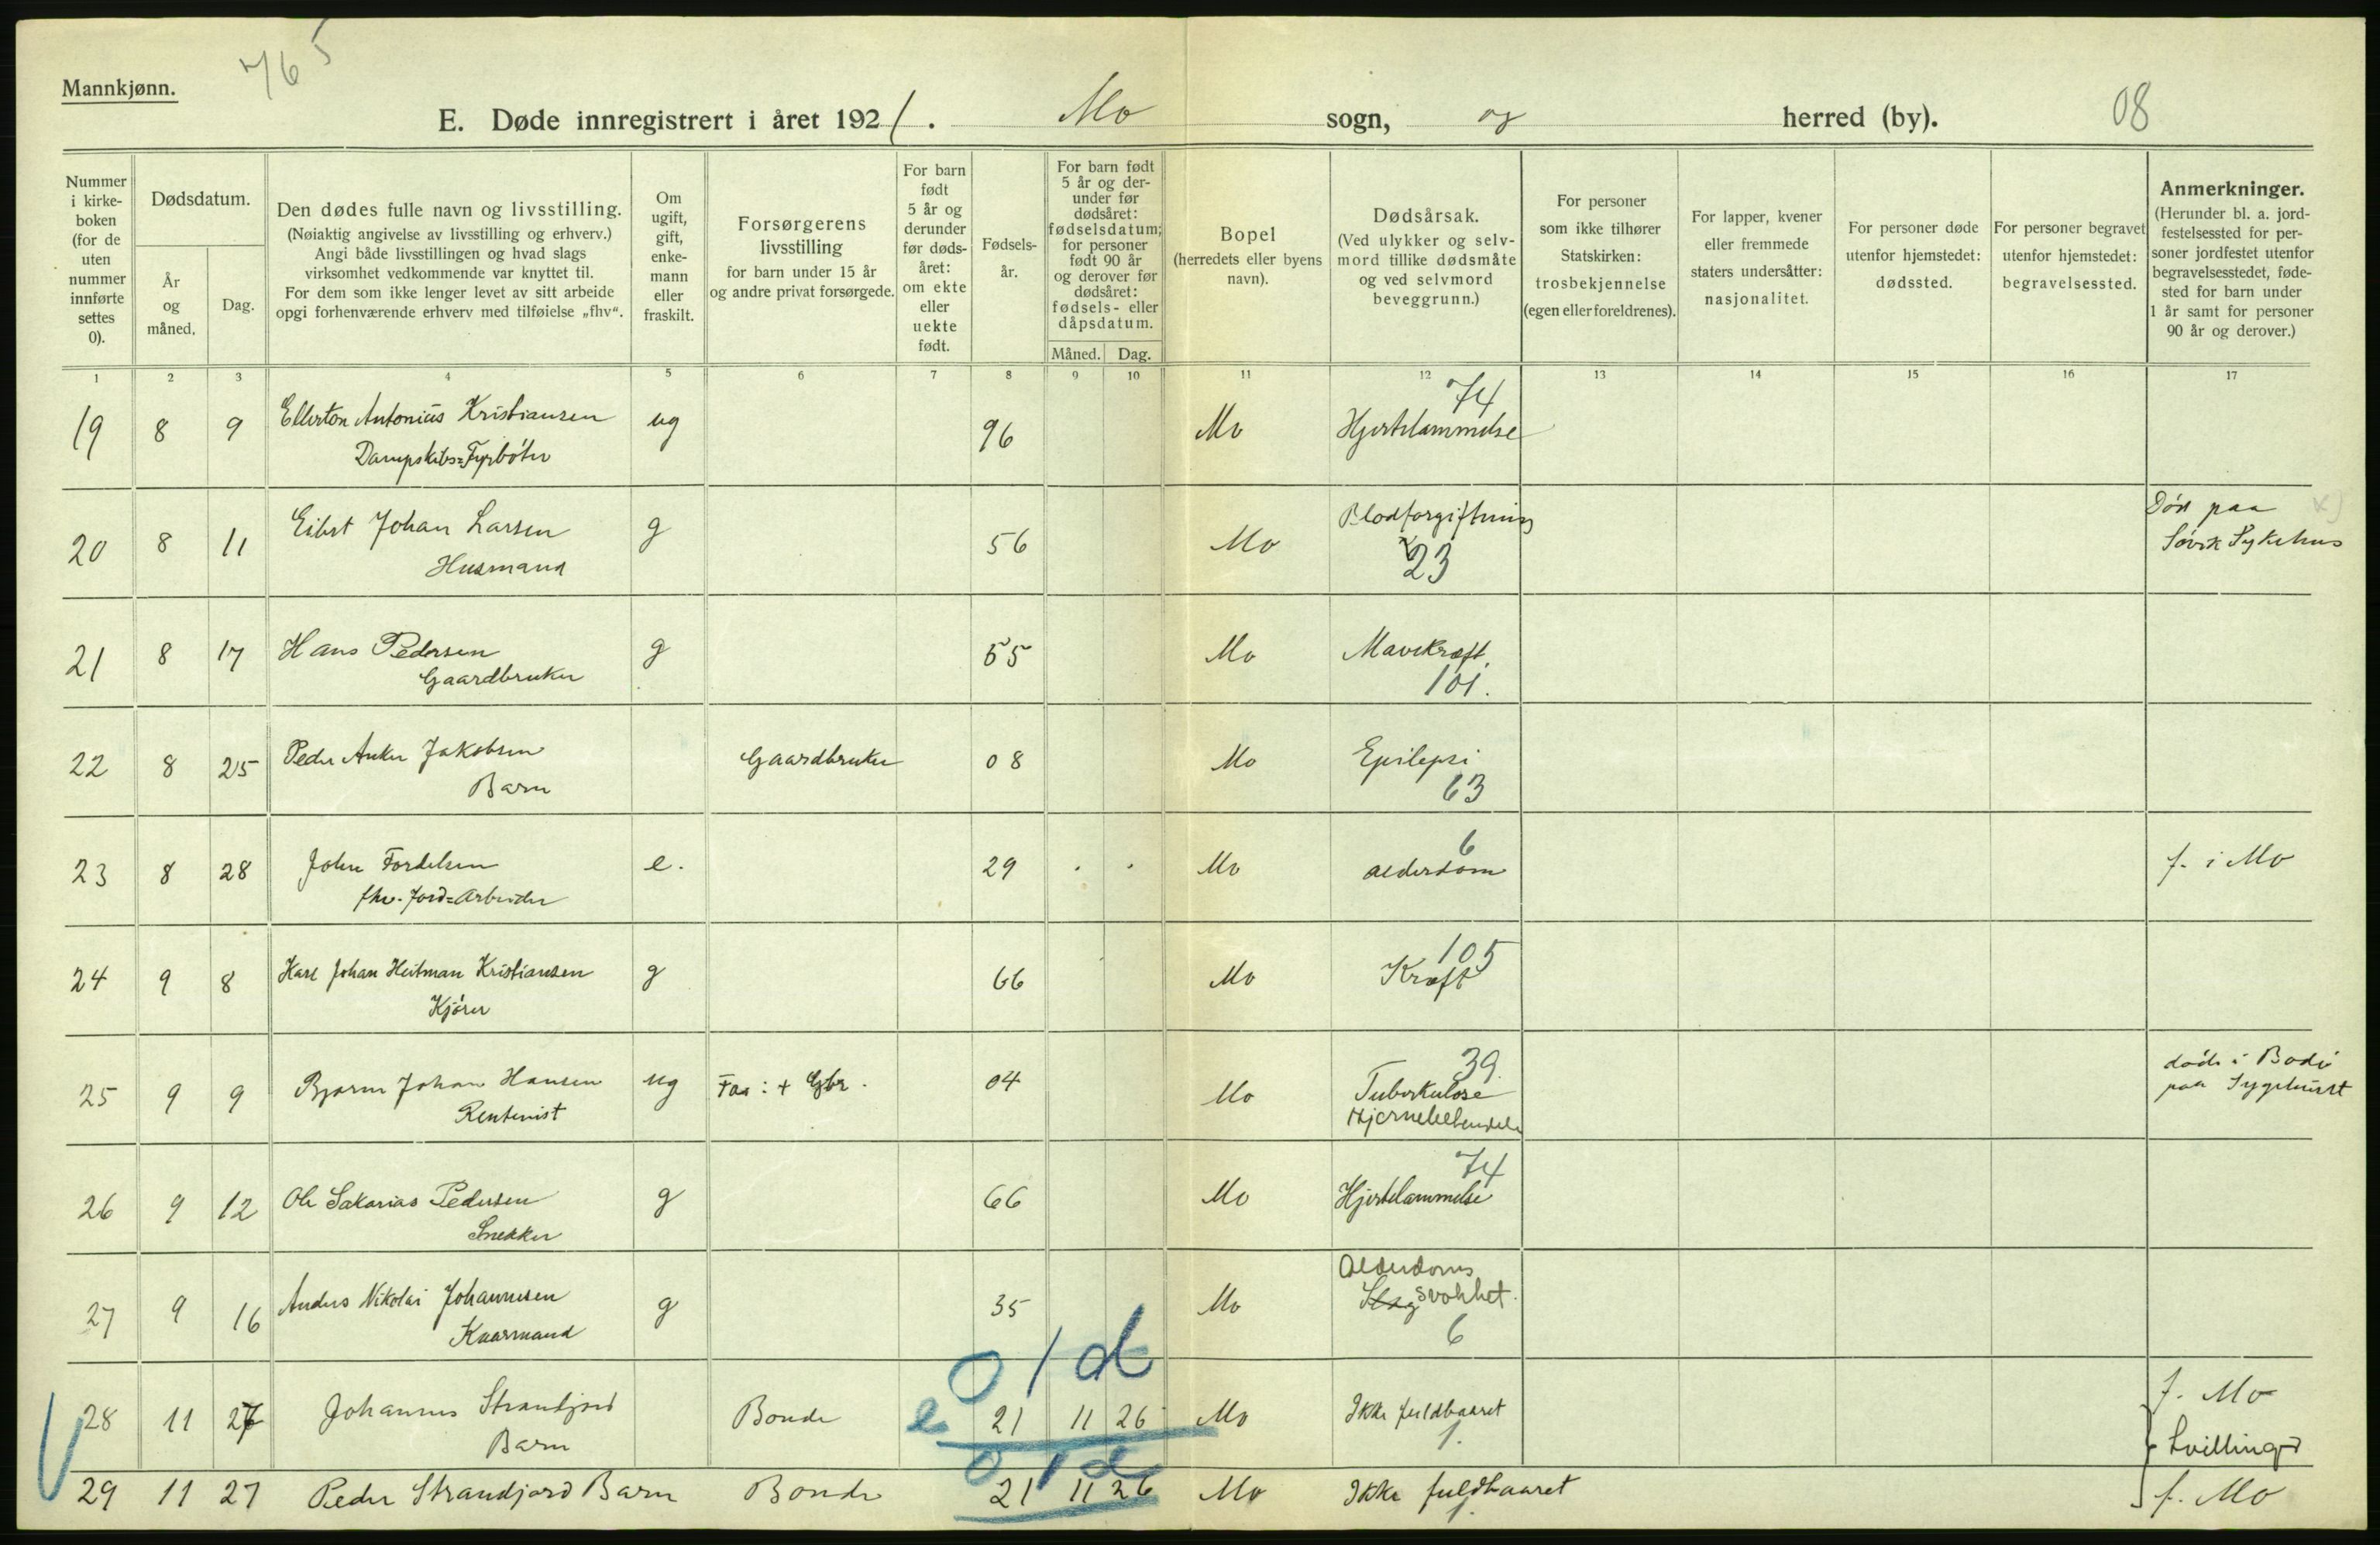 Mannkjønn.
765
E. Døde innregistrert i året 1921. Mo sogn, og herred (by).
08
Nummer i kirkeboken (for de uten nummer innførte settes 0).
Dødsdatum.
År og måned.
Dag.
Den dødes fulle navn og livsstilling.
(Nøiaktig angivelse av livsstilling og erhverv.)
Angi både livsstillingen og hvad slags
virksomhet vedkommende var knyttet til.
For dem som ikke lenger levet av sitt arbeide
opgi forhenværende erhverv med tilføielse „fhv“.
Om ugift, gift, enkemann eller fraskilt.
Forsørgerens livsstilling
for barn under 15 år
og andre privat forsørgede.
For barn født 5 år og derunder før dødsåret: om ekte eller uekte født.
Fødselsår.
For barn født 5 år og derunder før dødsåret: fødselsdatum; for personer født 90 år og derover før dødsåret: fødsels- eller dåpsdatum.
Måned. Dag.
Bopel
(herredets eller byens navn).
Dødsårsak.
(Ved ulykker og selvmord tillike dødsmåte og ved selvmord beveggrunn.)
For personer som ikke tilhører Statskirken: trosbekjennelse (egen eller foreldrenes).
For lapper, kvener eller fremmede staters undersåtter: nasjonalitet.
For personer døde utenfor hjemstedet: dødssted.
For personer begravet utenfor hjemstedet: begravelsessted.
Anmerkninger.
(Herunder bl. a. jordfestelsessted for personer jordfestet utenfor begravelsesstedet, fødested for barn under 1 år samt for personer 90 år og derover.)
1 2 3 4 5 6 7 8 9 10 11 12 13 14 15 16 17
19 8 9 Ellerton Antonius Kristiansen ug 96 Mo Hjertelammelse 74
Dampskibs=Fyrbøter
20 8 11 Eibert Johan Larsen g 56 Mo Blodforgiftning 23 Død paa
Husmand Søvik Sykehus
21 8 17 Hans Pedersen g 55 Mo Mavekræft
Gaardbruker 101.
22 8 25 Peder Anker Jakobsen Gaardbruker 08 Mo Epilepsi
Barn 63
23 8 28 John Fordelsen e. 29 . . Mo Alderdom 6 f. i Mo
fhv. Jord=Arbeider
24 9 8 Karl Johan Heitman Kristiansen g 66 Mo Kræft 105
Kjører
25 9 9 Bjarne Johan Hansen ug Far: + Gbr. 04 Mo 39. Tuberkuløse døde i Bodø
Rentenist paa Sygehuset
26 9 12 Ole Sakarias Pedersen g 66 Mo Hjertelammelse 74
Snekker
27 9 16 Anders Nikolai Johannesen g 35 Mo Alderdoms
Kaarmand svakhet. 6
0 1 d
28 11 27 Johannes Strandjord Bonde e 21 11 26 Mo Ikke fuldbaaret f. Mo
Barn 1. tvillinger
0 1 d
29 11 27 Peder Strandjord Barn Bonde 21 11 26 Mo Ikke fuldbaaret f. Mo
1.